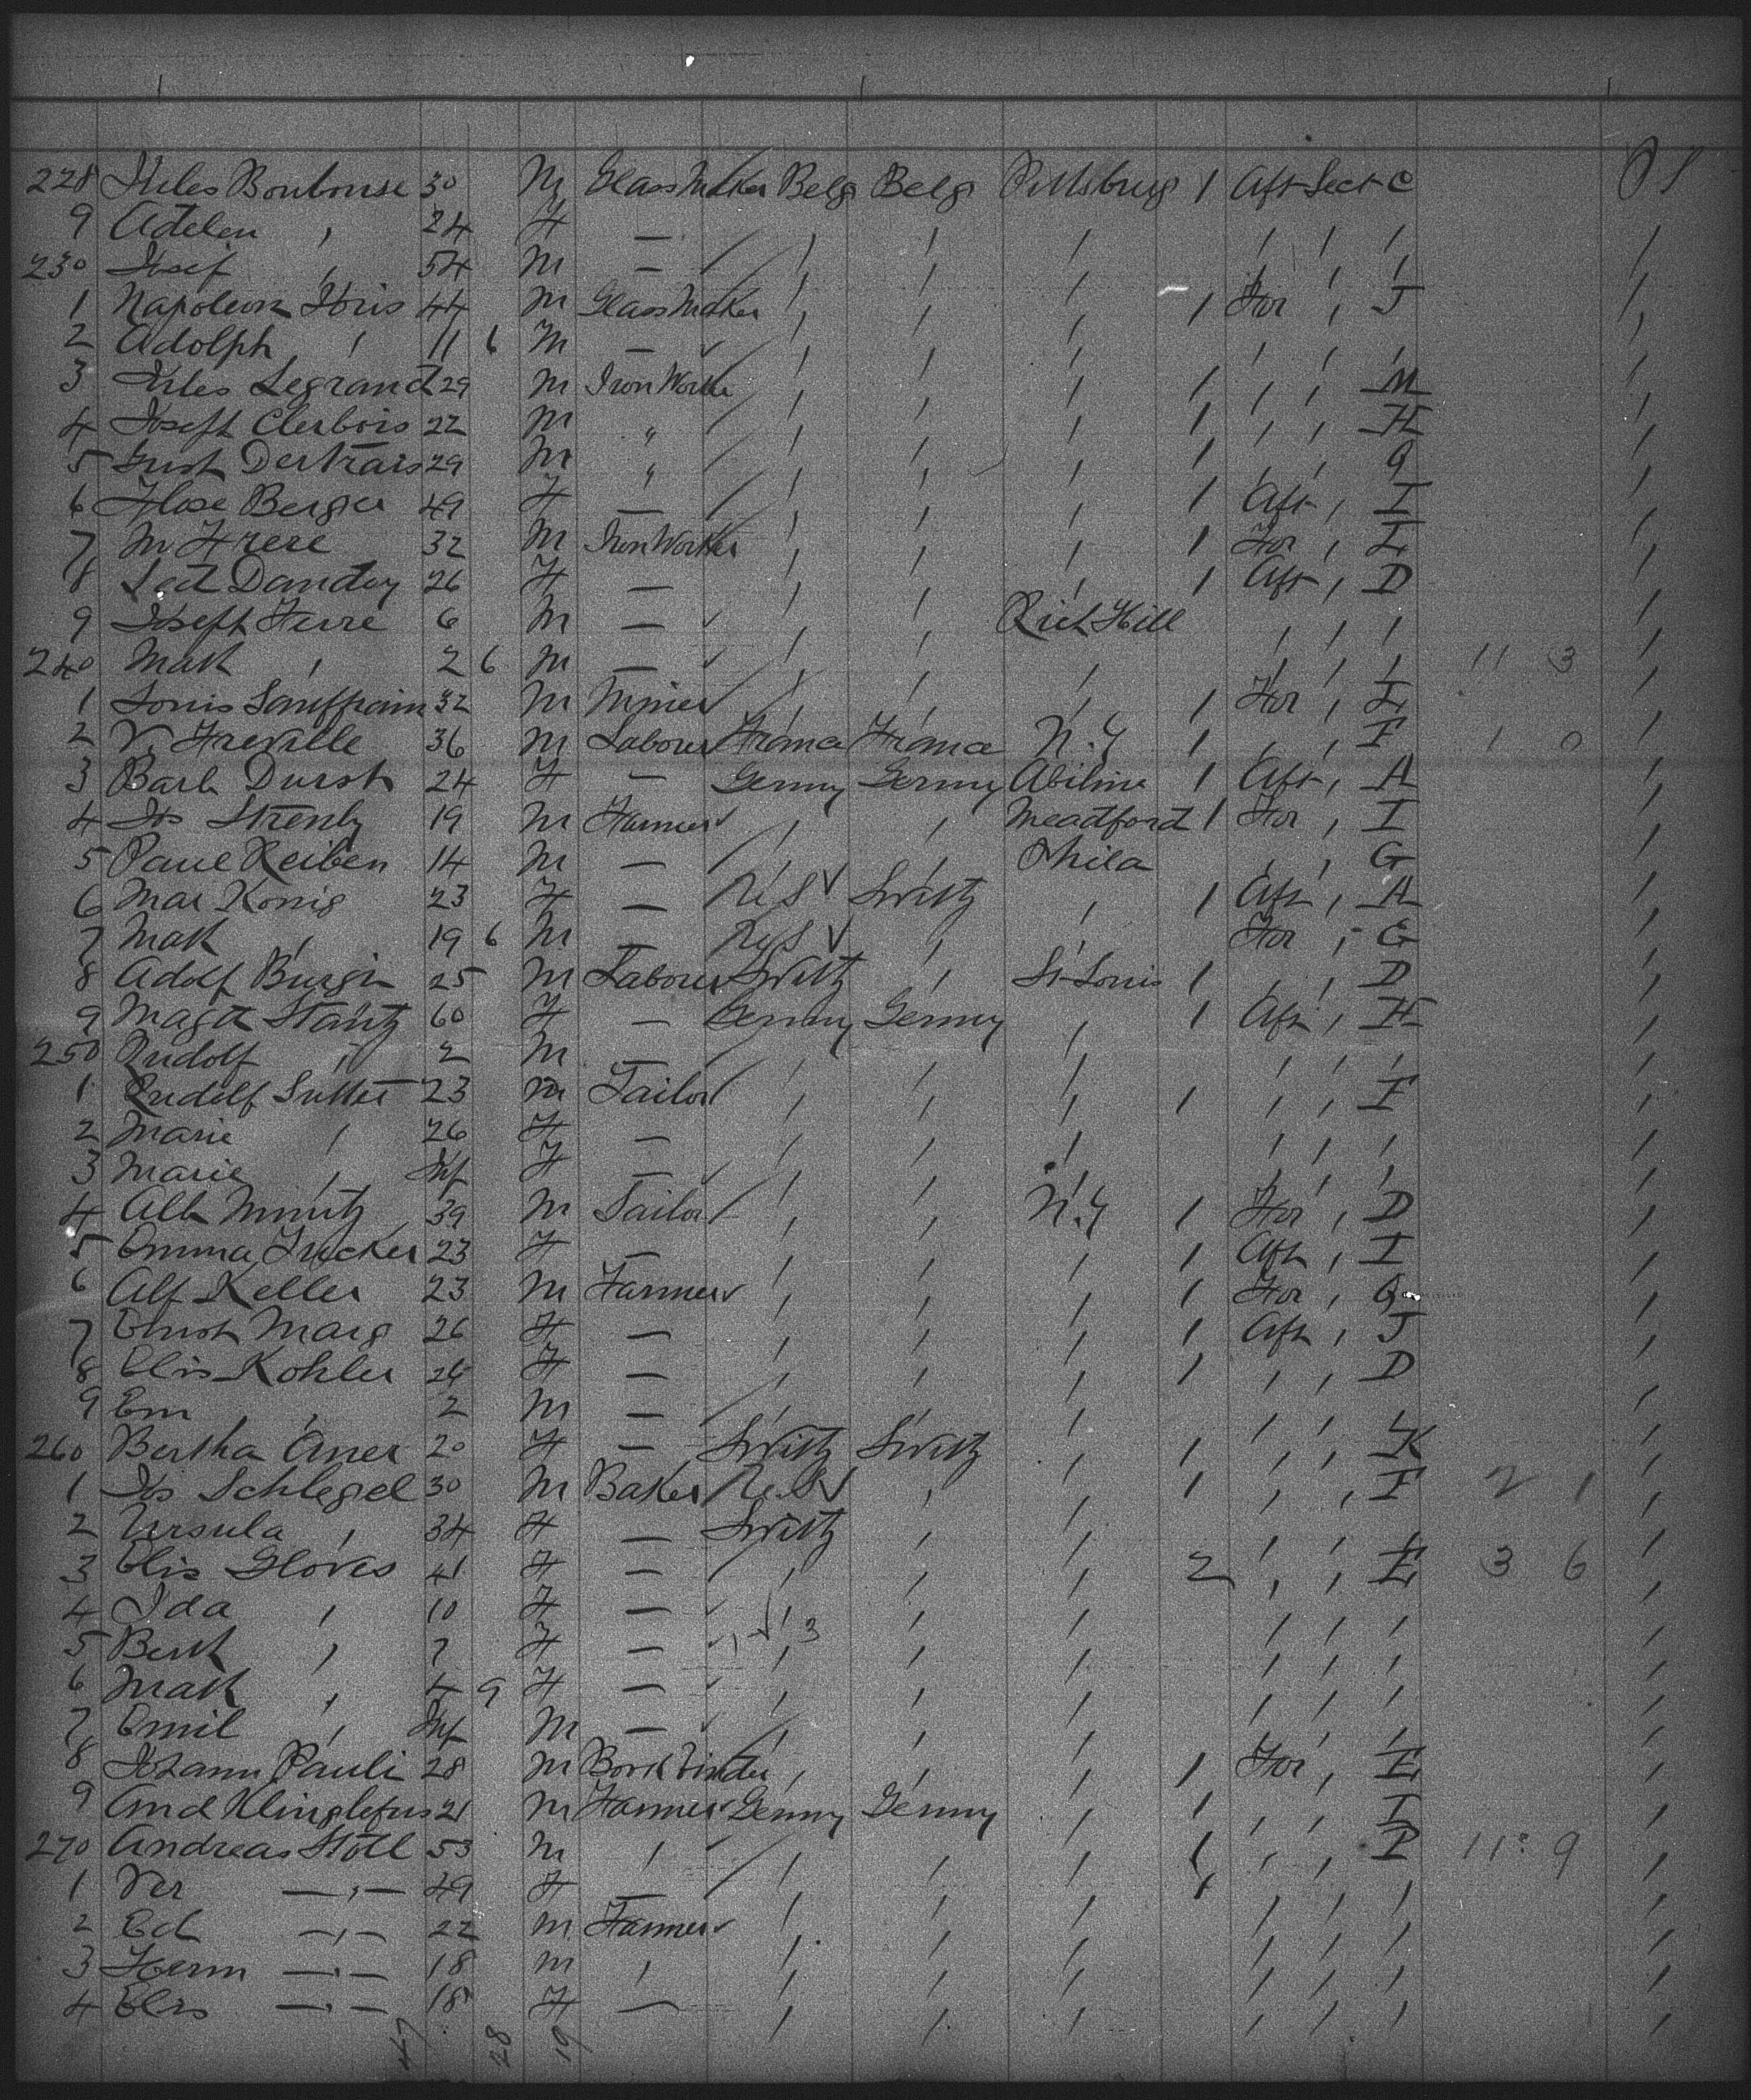 228 Jules Boulouse 30 M Glass Maker Belg Belg Pittsburg 1 Aft Sect C
9 Adelen , 24 F — / , , , , , ,
230 Josef , 54 M — / , , , , , ,
1 Napoleon Joris 44 M Glass Maker , , , 1 For , J
2 Adolph , 11 6 M — , , , , , ,
3 Jules Legrand 29 M Iron Worke , , , 1 , , M
4 Joseft Clerbois 22 M " / , , , 1 , , H
5 Gust Dertrais 29 M " / , , , 1 , , G
6 Flose Berger 49 F — / , , , 1 Aft , I
7 M Frere 32 M Iron Worker , , , 1 For , L
8 Led Dandoy 26 F — , , , 1 Aft , D
9 Joseft Ferre 6 M — , , Rich Hill , , ,
240 Math , 2 6 M — , , , , , , 11 3
1 Louis Sauffpain 32 M Miner , , , 1 For , L
2 V. Freville 36 M Labourer France France N.Y 1 , , F 1 0
3 Barb Durst 24 F — Germy Germy Abiline 1 Aft , A
4 Jos Strenby 19 M Farmer , , Meadford 1 For , I
5 Paul Reiben 14 M — / , , Phila , , G
6 Mar Konig 23 F — U.S Switz , 1 Aft , A
7 Math , 19 6 M — U.S , , For , G
8 Adolf Burgin 25 M Labourer Switz , St Louis 1 , , D
9 Magd Stantz 60 F — Germy Germy , 1 Aft , H
250 Rudolf , 2 M — / , , , , , ,
1 Rudolf Sutter 23 M Tailor , , , 1 , , F
2 Marie , 26 F — , , , , , ,
3 Marie , Inf F — , , , , , ,
4 Alb Mintz 39 M Tailor , , N.Y 1 For , D
5 Emma Jucker 23 F — , , , 1 Aft , I
6 Alf Keller 23 M Farmer , , , 1 For , G
7 Christ Marg 26 F — , , , 1 Aft , J
8 Elis Kohler 26 F — , , , 1 , , D
9 Em , 2 M — / , , , , , ,
260 Bertha Aner 20 F — Switz Switz , 1 , , K
1 Jos Schlegel 30 M Baker U.S , , 1 , , F 2 1
2 Ursula , 34 F — Switz , , , , ,
3 Elis Gloves 41 F — / , , , 2 , , E 3 6
4 Ida , 10 F — , , , , , ,
5 Bert , 7 F — , 3 , , , , ,
6 Math , 4 9 F — , , , , , ,
7 Emil , Inf M — , , , , , ,
8 Johann Pauli 28 M Bookbinder , , , 1 For , E
9 And Klinglefus 21 M Farmer Germy Germy , 1 , , I
270 Andreas Stoll 53 M , / , , , 1 , , P 11 9
1 Ver —,— 49 F — / , , , 1 , , ,
2 Ed —,— 22 M Farmer , , , , , ,
3 Herm —,— 18 M , , , , , , ,
4 Elis —,— 18 F — , , , , , ,
47 28 19